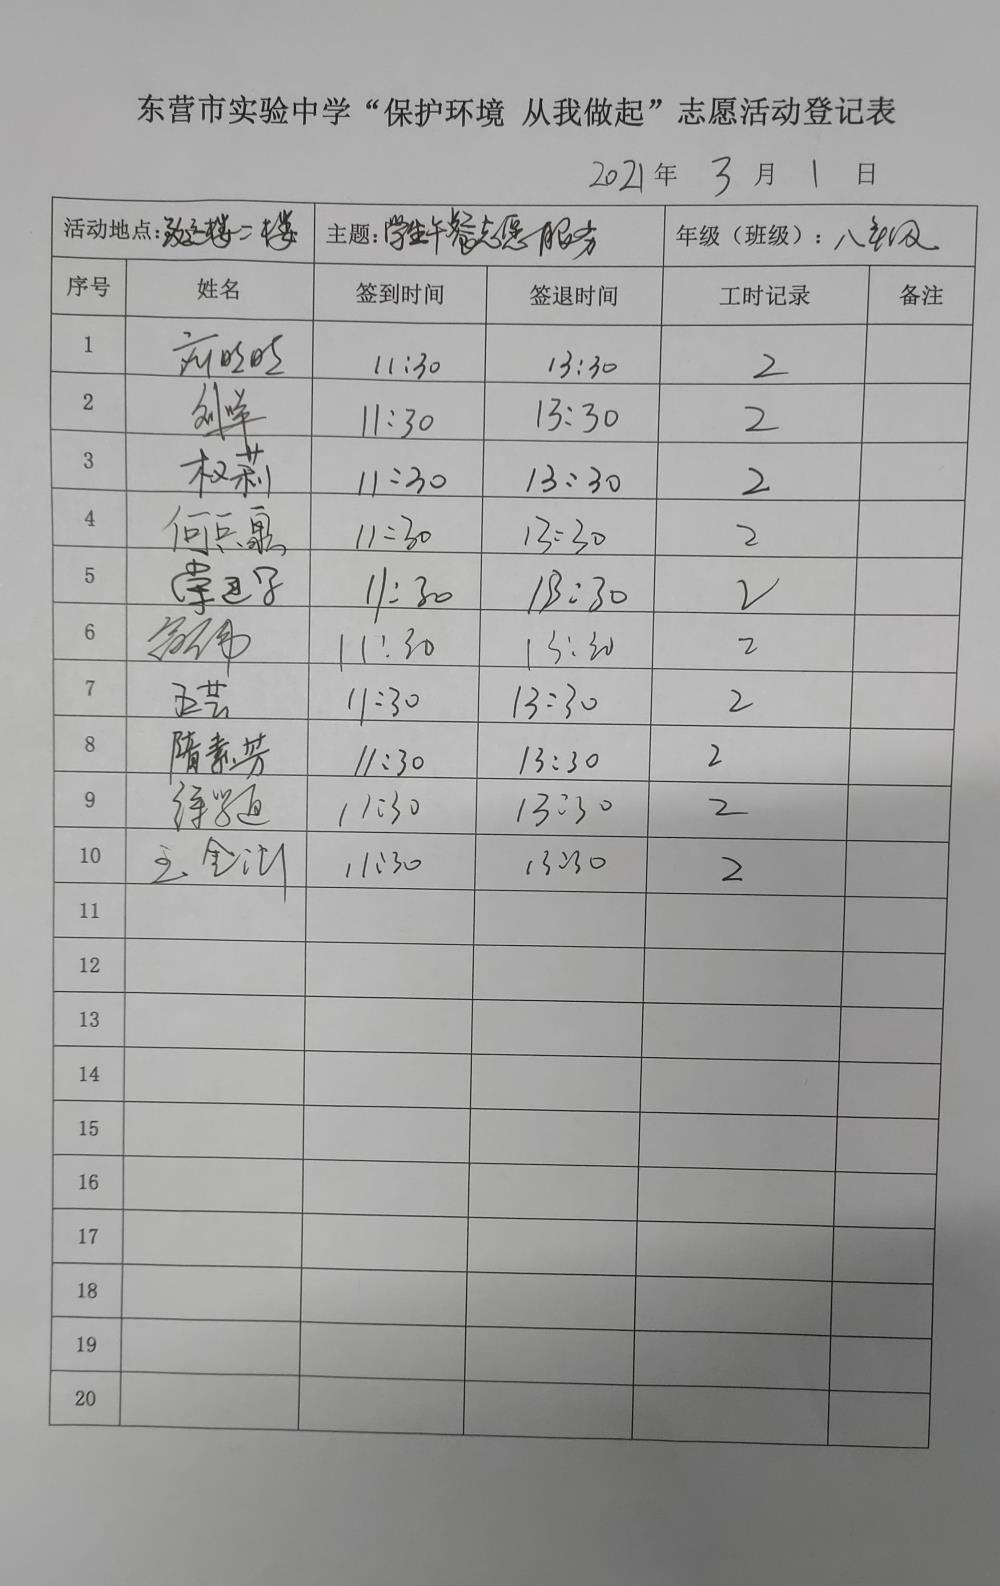 东营市实验中学“保护环境 从我做起”志愿活动登记表
2021年 3 月 1 日
活动地点: 楼二楼 主题: 学生午餐志愿服务 年级（班级）: 八年级
序号 姓名 签到时间 签退时间 工时记录 备注
1 11:30 13:30 2
2 11:30 13:30 2
3 权莉 11:30 13:30 2
4 11:30 13:30 2
5 11:30 13:30 2
6 11:30 13:30 2
7 王芸 11:30 13:30 2
8 隋素芳 11:30 13:30 2
9 11:30 13:30 2
10 11:30 13:30 2
11
12
13
14
15
16
17
18
19
20